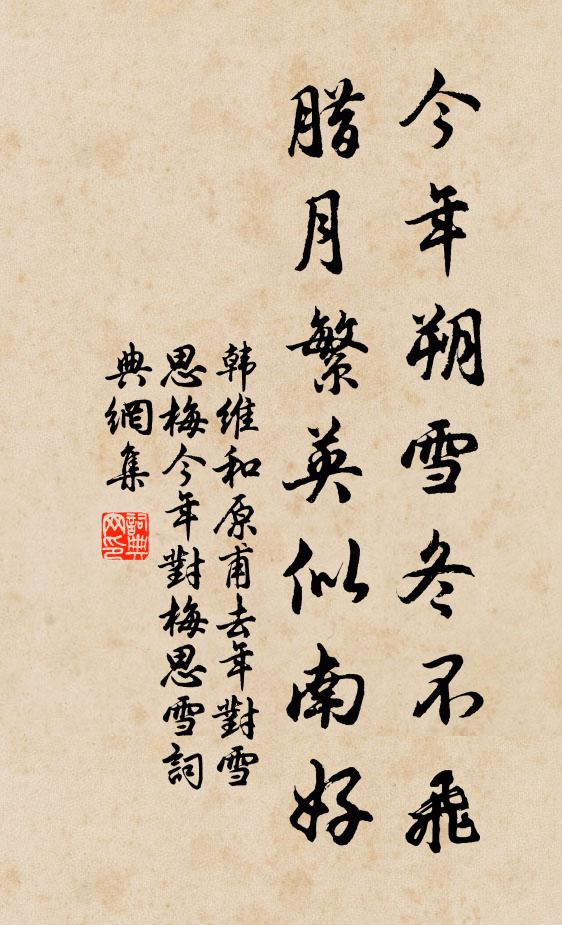 今年朔雪冬不飛
腊月繁英似南好
韩维和原甫去年對雪
思梅今年對梅思雪詞
典網集
詞典
网印